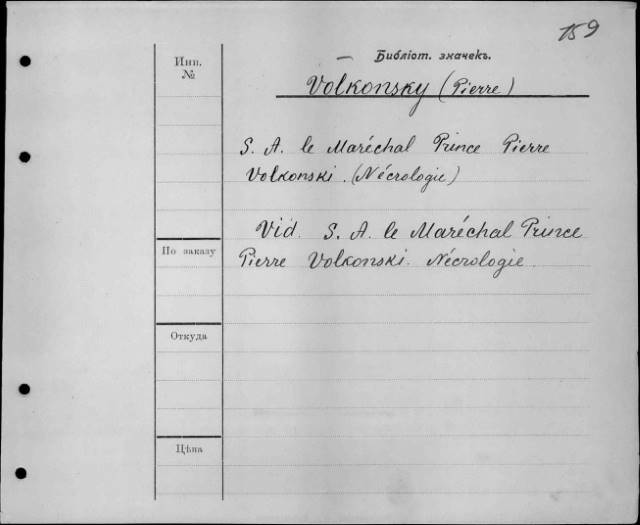 159
Библіот. значекъ.
Инв.
№
Volkonsky (Pierre)
S. A. le Maréchal Prince Pierre
Volkonski. (Nécrologie)
Vid. S. A. le Maréchal Prince
По заказу
Pierre Volkonski. Nécrologie.
Откуда
Цѣна